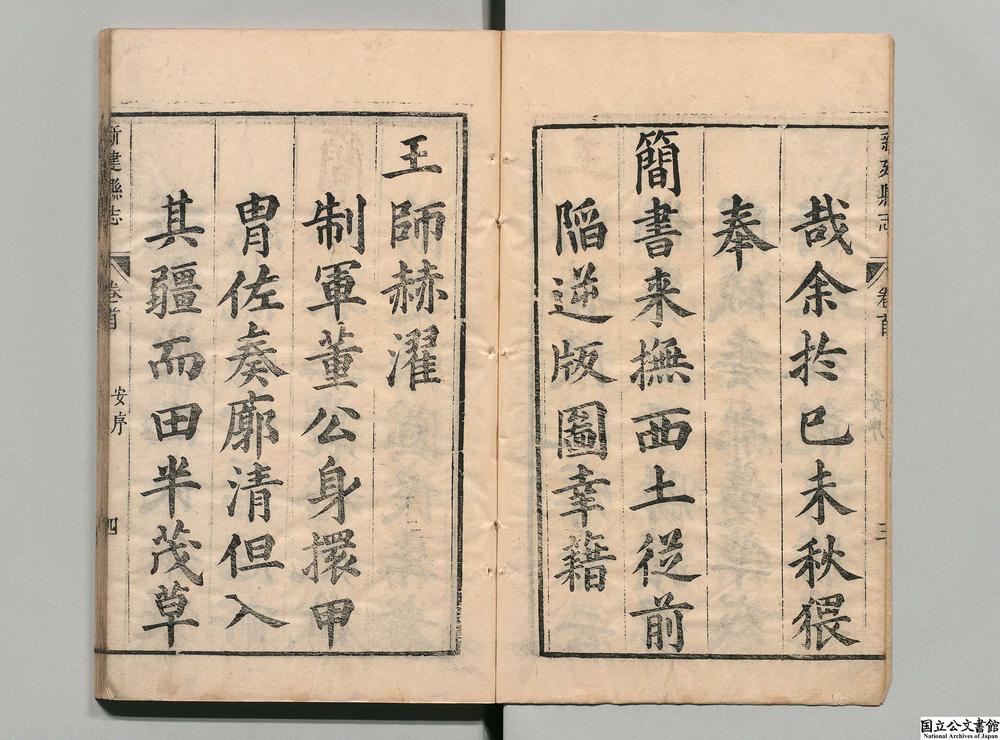 新建縣志 卷首 安序 三
哉余扵己未秋猥
奉
簡書来撫西土從前
陷逆版圖幸藉
王師赫濯
制軍董公身擐甲
冑佐奏廓清但入
其疆而田半茂草
新建縣志 卷首 安序 四
国立公文書館
National Archives of Japan